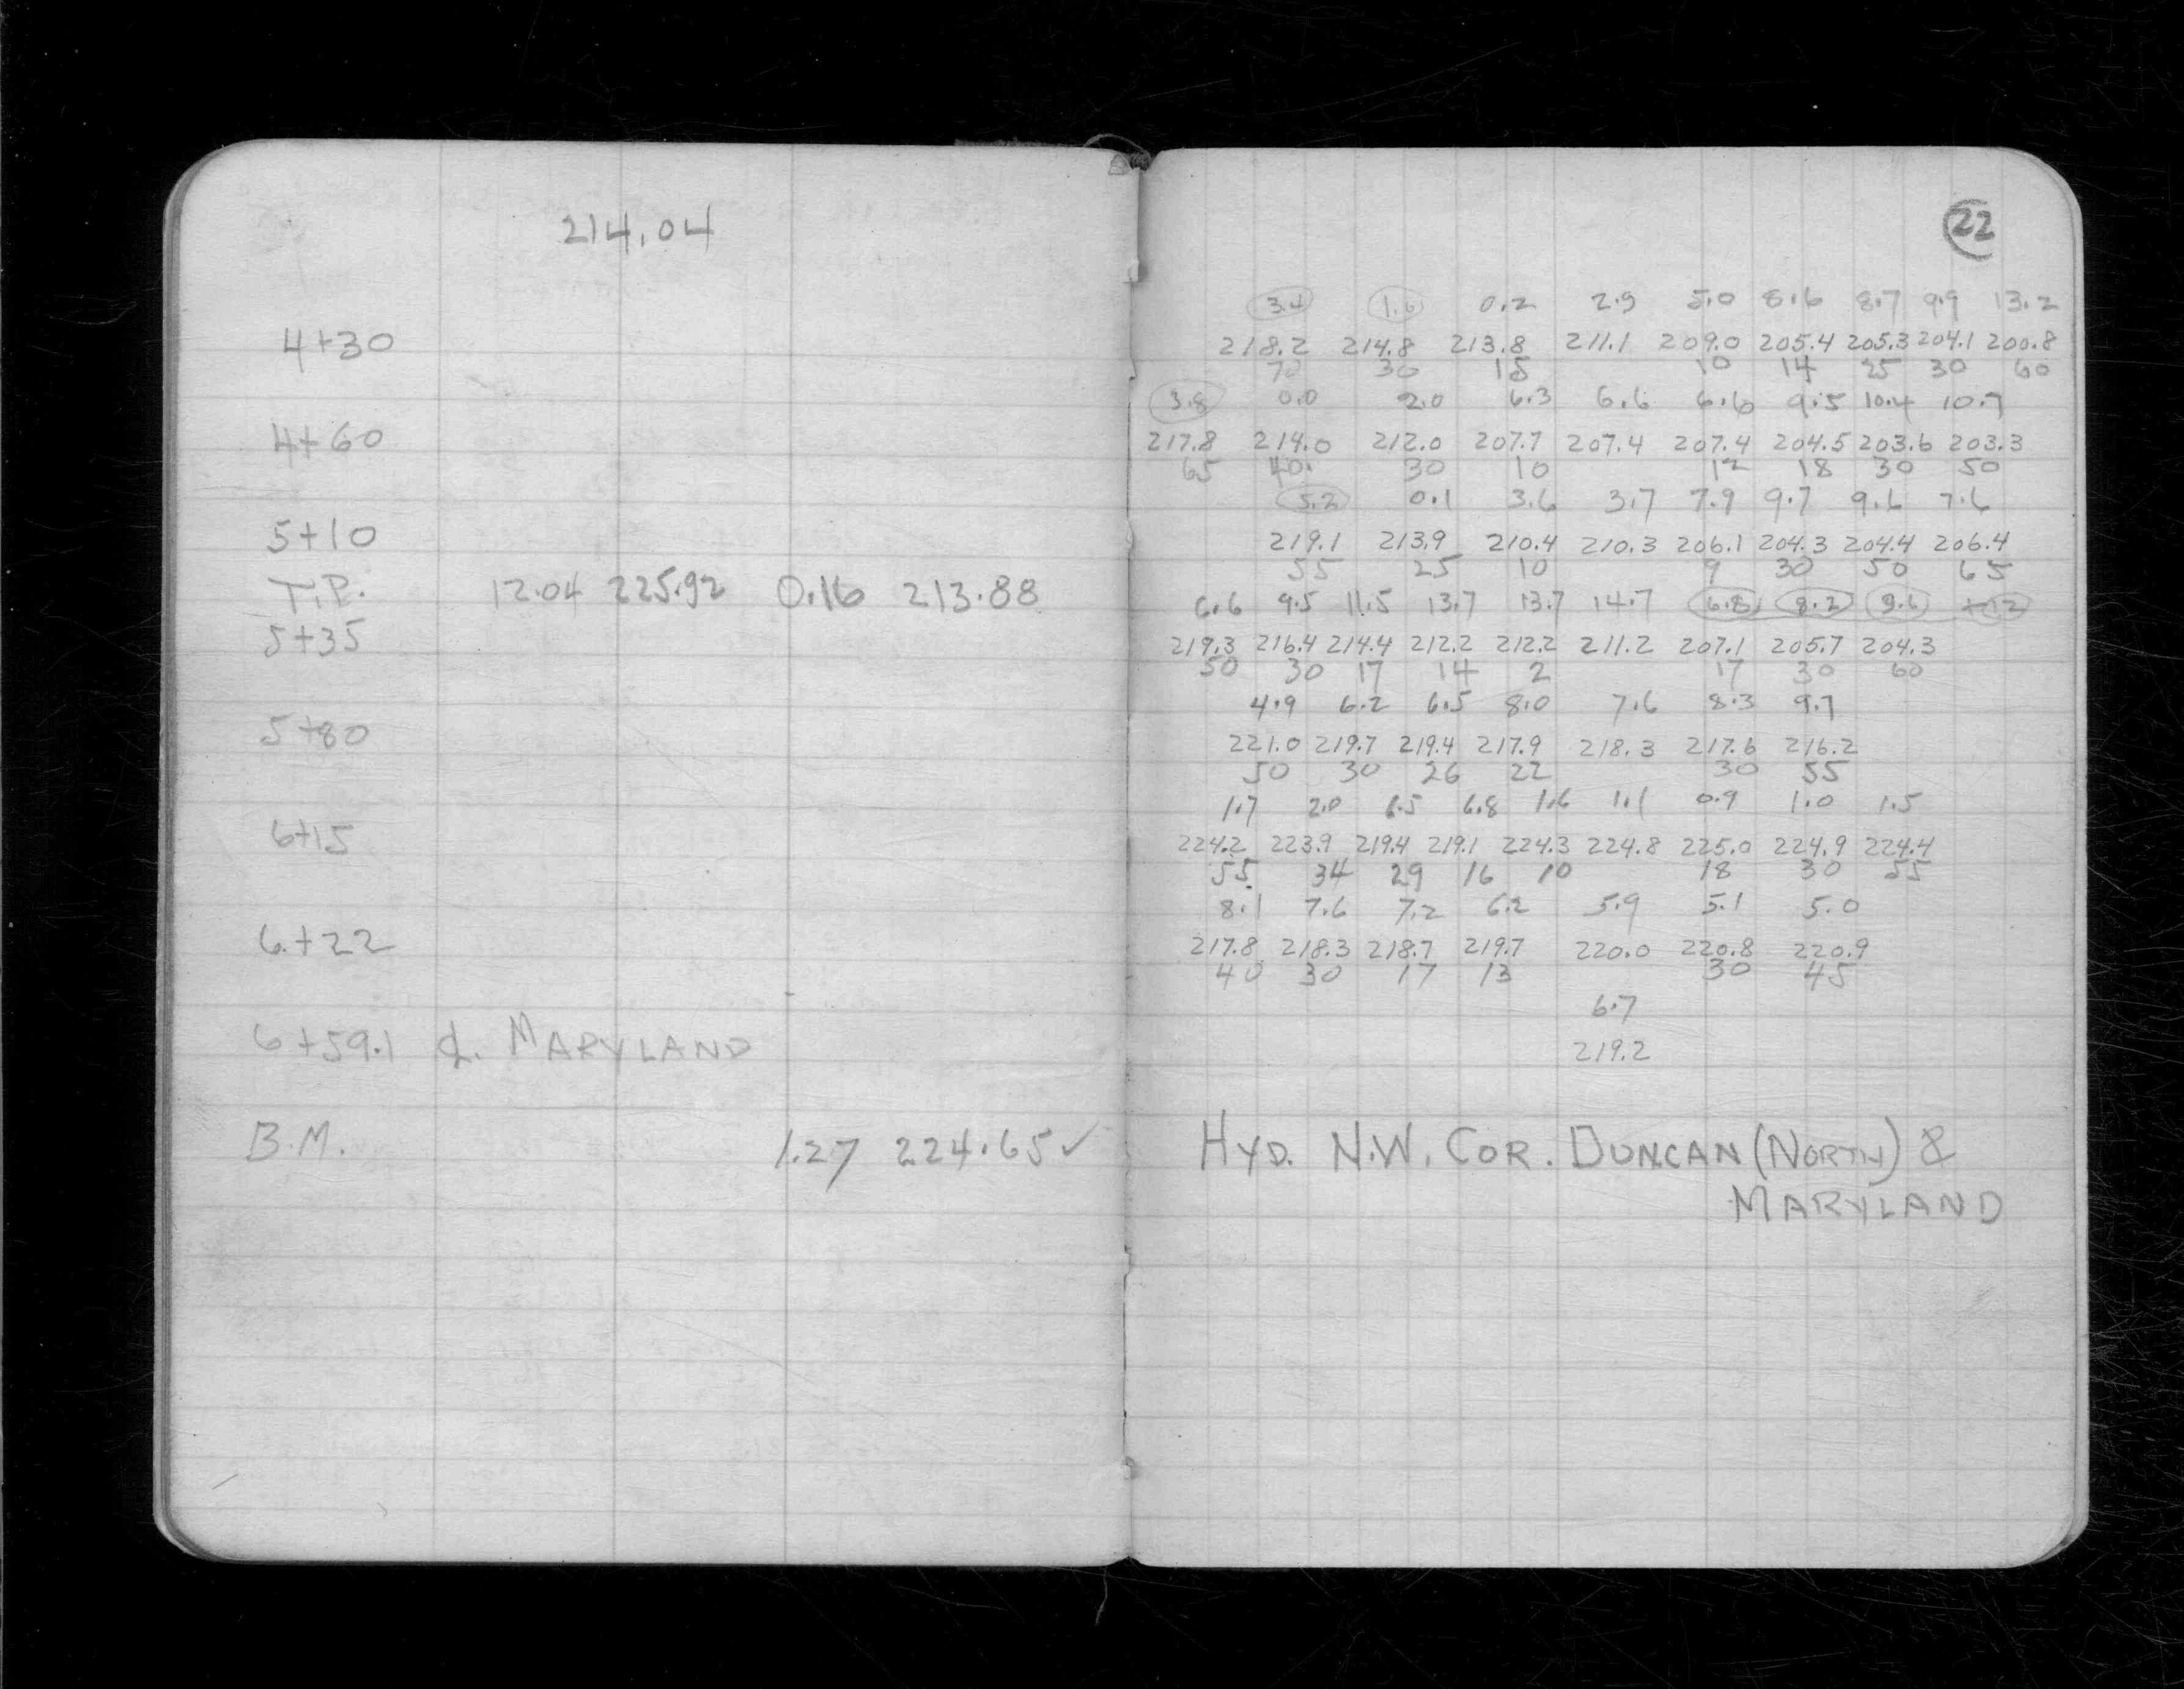 214.04
4+30
4+60
5+10
T.P. 12.04 225.92 0.16 213.88
5+35
5+80
6+15
6+22
6+59.1 ℄. MARYLAND
B.M. 1.27 224.65 ✓
22
3.4 1.6 0.2 2.9 5.0 8.6 8.7 9.9 13.2
218.2 214.8 213.8 211.1 209.0 205.4 205.3 204.1 200.8
70 30 15 10 14 25 30 60
3.8 0.0 2.0 6.3 6.6 6.6 9.5 10.4 10.7
217.8 214.0 212.0 207.7 207.4 207.4 204.5 203.6 203.3
65 40 30 10 12 18 30 50
5.2 0.1 3.6 3.7 7.9 9.7 9.6 7.6
219.1 213.9 210.4 210.3 206.1 204.3 204.4 206.4
55 25 10 9 30 50 65
6.6 9.5 11.5 13.7 13.7 14.7 6.8 8.2 9.6 +12
219.3 216.4 214.4 212.2 212.2 211.2 207.1 205.7 204.3
50 30 17 14 2 17 30 60
4.9 6.2 6.5 8.0 7.6 8.3 9.7
221.0 219.7 219.4 217.9 218.3 217.6 216.2
50 30 26 22 30 55
1.7 2.0 6.5 6.8 1.6 1.1 0.9 1.0 1.5
224.2 223.9 219.4 219.1 224.3 224.8 225.0 224.9 224.4
55 34 29 16 10 18 30 55
8.1 7.6 7.2 6.2 5.9 5.1 5.0
217.8 218.3 218.7 219.7 220.0 220.8 220.9
40 30 17 13 30 45
6.7
219.2
HYD. N.W. COR. DUNCAN (NORTH) &
MARYLAND